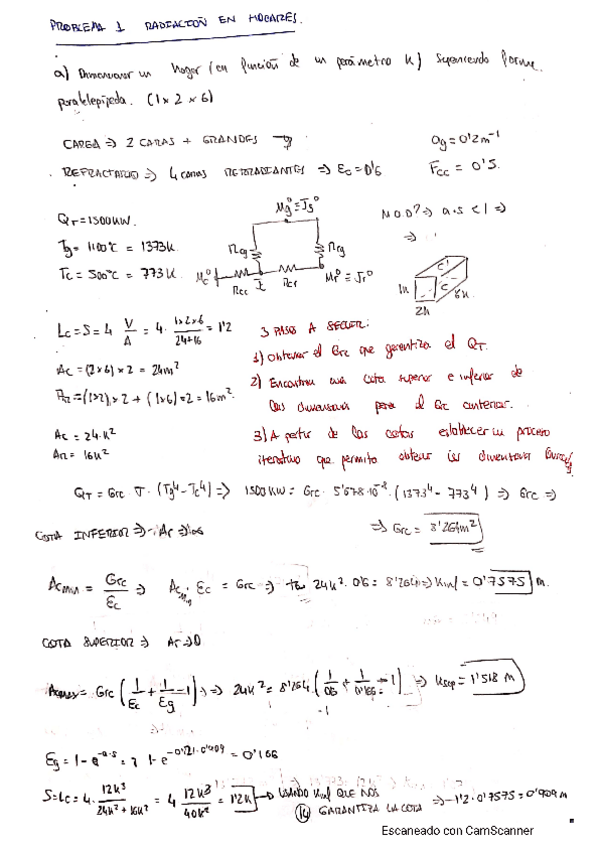 PROBLEMA 1 RADIACIÓN EN HOGARES.
a) Dimensionar un hogar (en función de un parámetro K) suponiendo forma
paralelepípeda. (1x2x6)
CARGA => 2 CARAS + GRANDES
ag = 0'2 m⁻¹
REFRACTARIO => 4 caras RERRADIANTES => Ec = 0'6
Fcc = 0'5.
QT = 1500 KW.
Mg° = Jg°
N.O.D? => a.s < 1 =>
=>
Tg = 1100°C = 1373K.
Rcg
Rrg
Tc = 500°C = 773K.
Mc°
Rcc
Jc
Rcr
Mr° = Jr°
C'
C
1K
2K
6K
Lc = S = 4 V/A = 4 · 1x2x6/24+16 = 1'2
3 PASOS A SEGUIR:
1) Obtener el Grc que garantiza el QT.
Ac = (2x6) x 2 = 24m²
2) Encontrar una cota superior e inferior de
AR = (1x2) x 2 + (1x6) x 2 = 16m².
las dimensiones para el Gc anterior.
Ac = 24·K²
3) A partir de las cotas establecer un proceso
AR = 16K²
iterativo que permita obtener las dimensiones
QT = Grc · σ · (Tg⁴ - Tc⁴) => 1500KW = Grc · 5'678·10⁻⁸ · (1373⁴ - 773⁴) => Grc =>
=> Grc = 8'264m²
COTA INFERIOR => Ar =>
Acmin = Grc/Ec => Acmin · Ec = Grc => 24K² · 0'6 = 8'264 => Kinf = 0'7575 m.
COTA SUPERIOR => Ar → 0
Acmax = Grc (1/Ec + 1/Eg - 1) => 24K² = 8'264 · (1/0'6 + 1/0'166 - 1) => Ksup = 1'518 m
Eg = 1 - e⁻ᵃ·ˢ = 1 - e^-0'2·0'909 = 0'166
S = Lc = 4 · 12K³/24K² + 16K² = 4 12K³/40K² = 1'2K → USANDO Kinf QUE NOS
GARANTIZA LA COTA => 1'2 · 0'7575 = 0'909 m
14
Escaneado con CamScanner